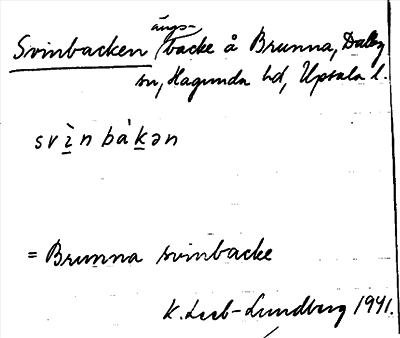 Svinbacken ängsbacke å Brunna, Dalby
sn, Hagunda hd, Upsala l.
svìnbàkən
= Brunna svinbacke
K. Leeb-Lundberg 1941.